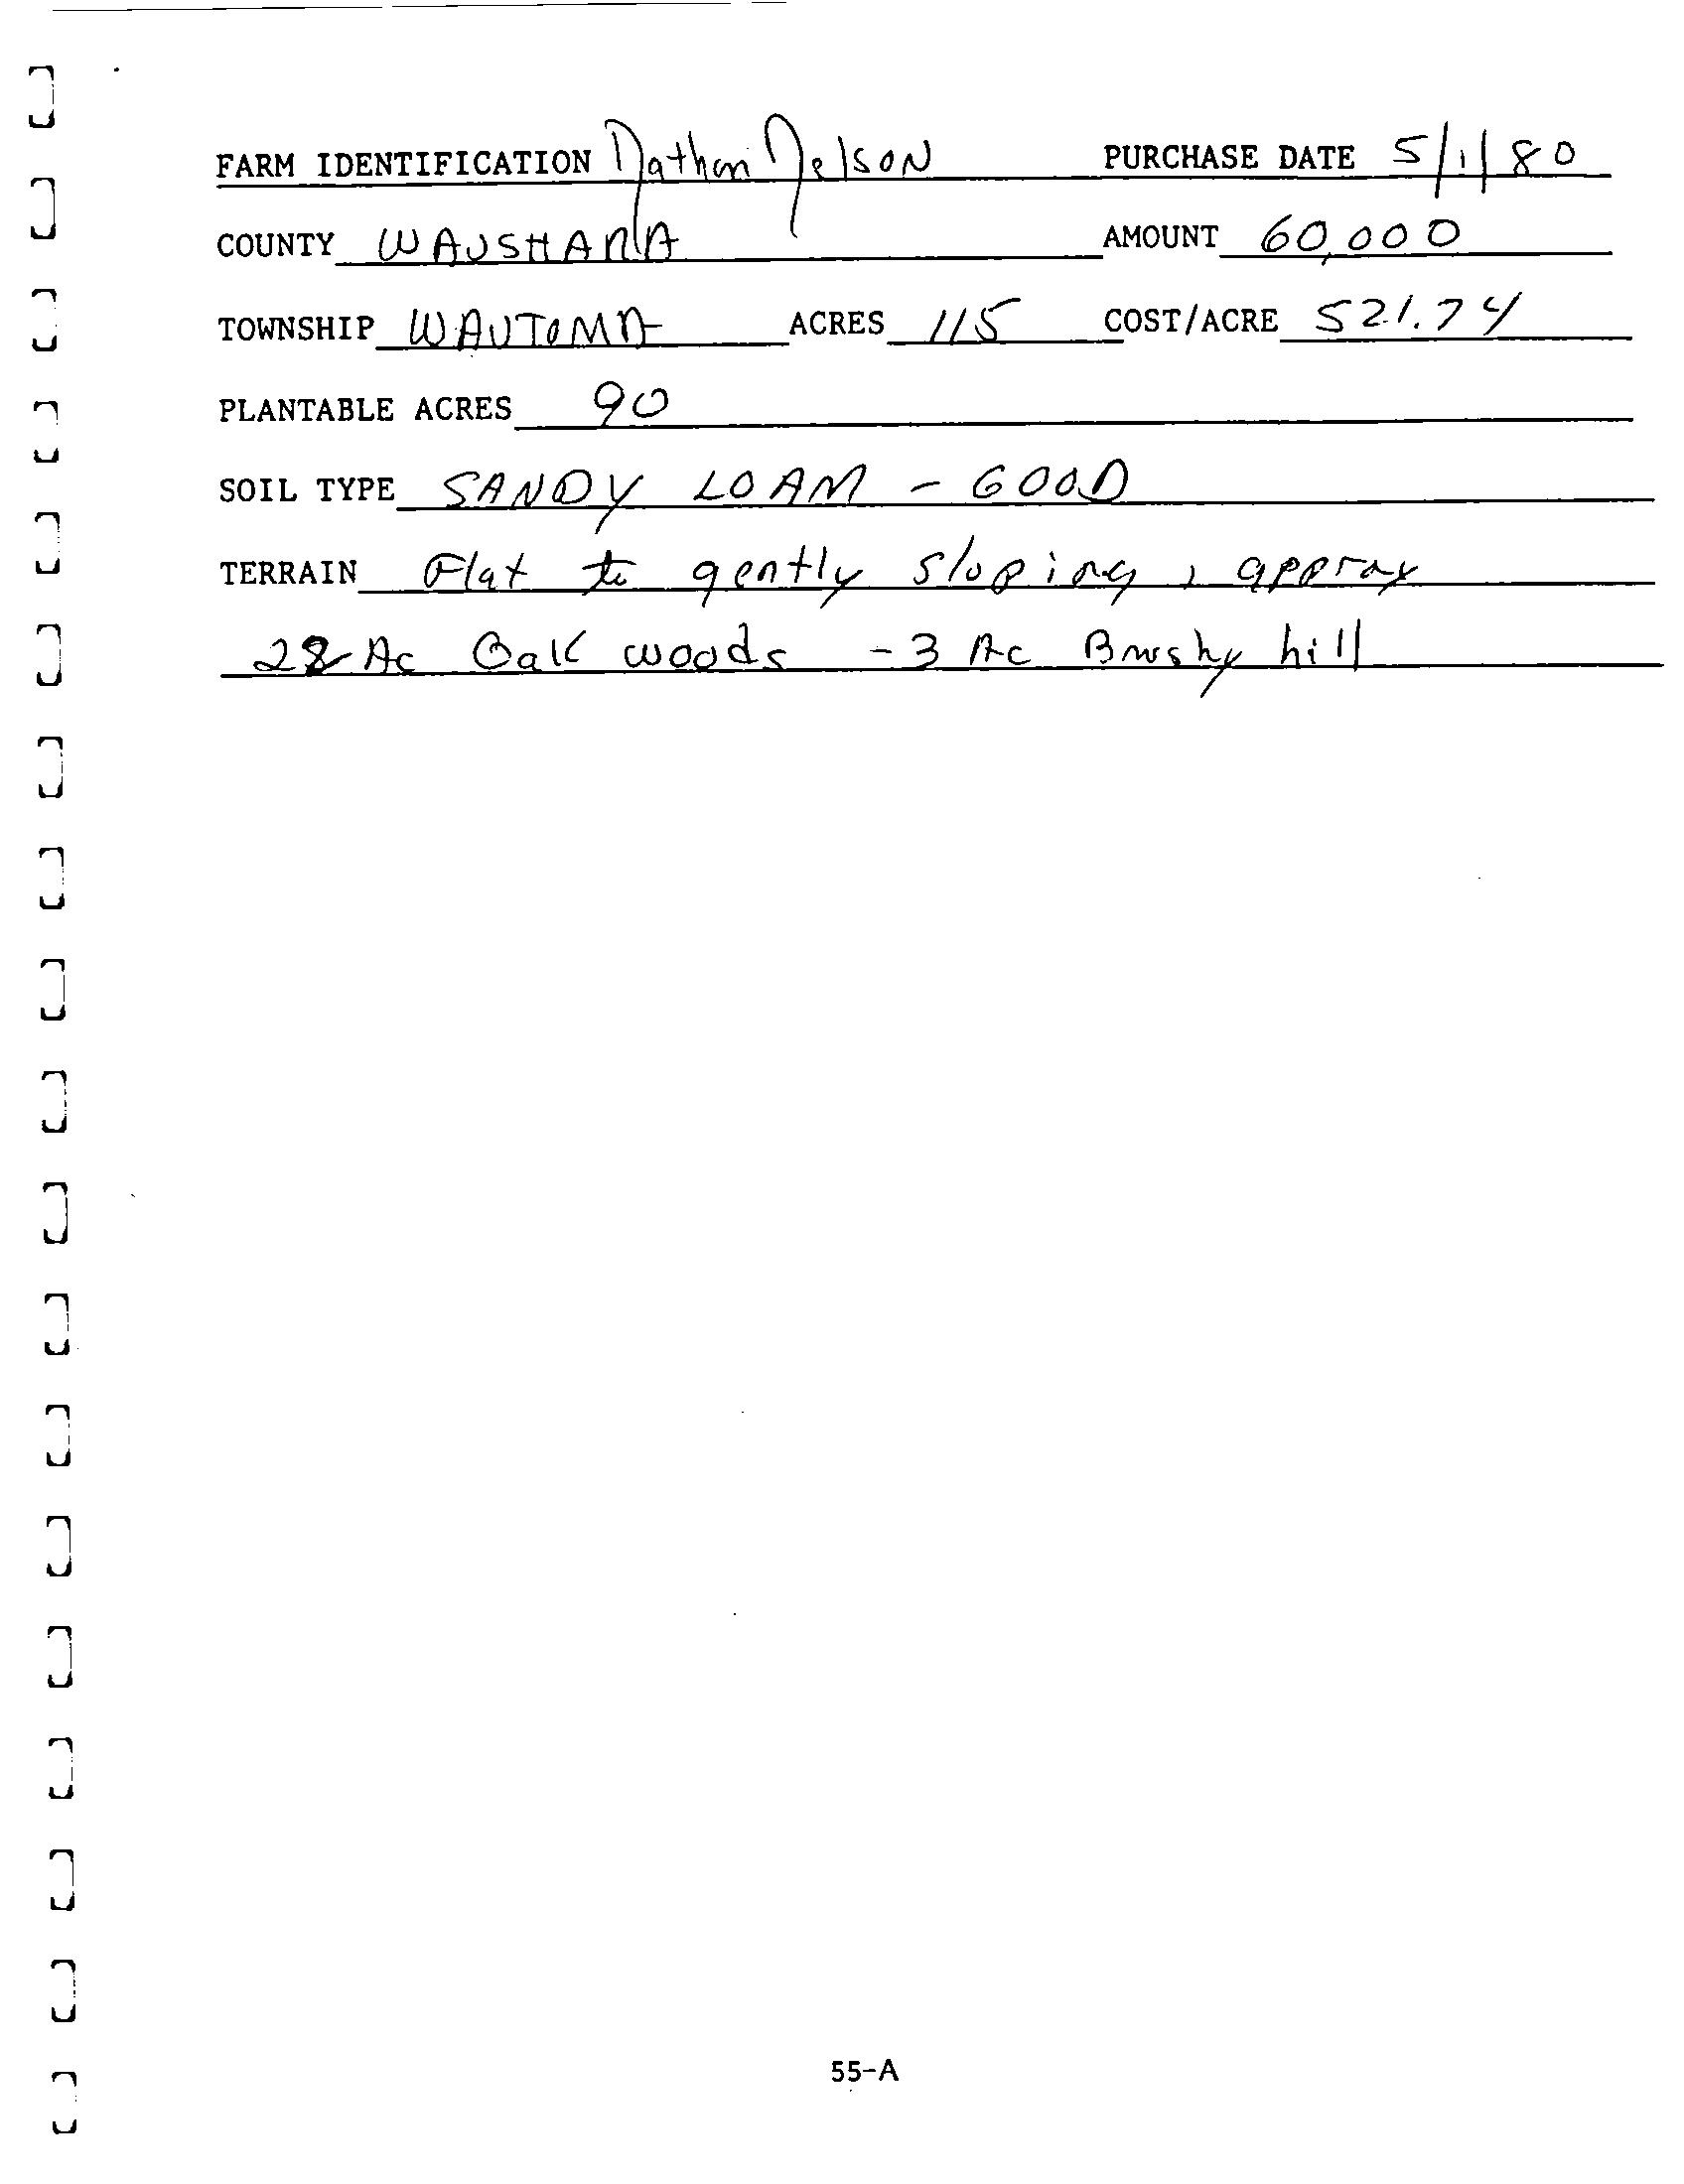 FARM IDENTIFICATION Nathan Nelson PURCHASE DATE 5/1/80
COUNTY WAUSHARA AMOUNT 60,000
TOWNSHIP WAUTOMA ACRES 115 COST/ACRE 521.74
PLANTABLE ACRES 90
SOIL TYPE SANDY LOAM - GOOD
TERRAIN Flat to gently sloping, approx
22 Ac Oak woods - 3 Ac Brushy hill
55-A